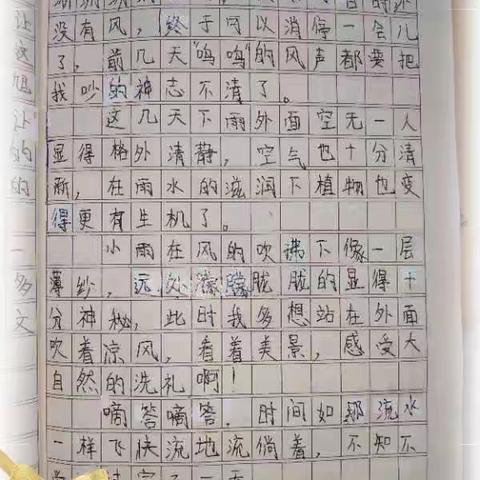 没有风，终于可以消停一会儿
了，前几天"呜呜"的风声都要把
我吵的神志不清了。
这几天下雨外面空无一人
显得格外清静，空气也十分清
新，在雨水的滋润下植物也变
得更有生机了。
小雨在风的吹拂下像一层
薄纱，远处朦朦胧胧的显得十
分神秘，此时我多想站在外面
吹着凉风，看着美景，感受大
自然的洗礼啊！
嘀答嘀答，时间如那流水
一样飞快流地流倘着，不知不